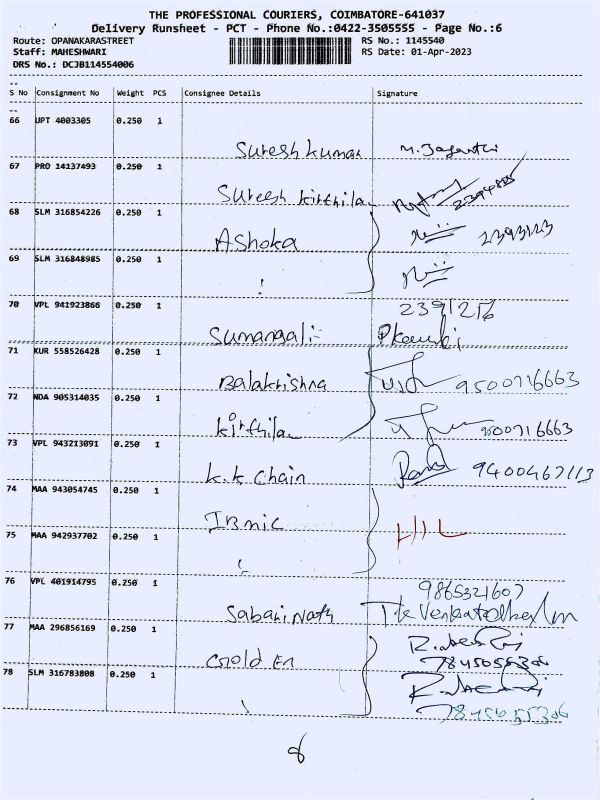 THE PROFESSIONAL COURIERS, COIMBATORE-641037
Delivery Runsheet - PCT - Phone No.:0422-3505555 - Page No.:6
Route: OPANAKARASTREET RS No.: 1145540
Staff: MAHESHWARI RS Date: 01-Apr-2023
DRS No.: DCJB114554006
S No Consignment No Weight PCS Consignee Details Signature
66 UPT 4003305 0.250 1
Sureshkumar
67 PRO 14137493 0.250 1
Suresh kirthila
68 SLM 316854226 0.250 1
Ashoka
69 SLM 316848985 0.250 1
70 VPL 941923866 0.250 1 2391256
Sumangali
71 KUR 558526428 0.250 1
Balakrishna 9500716663
72 NDA 905314035 0.250 1
kirthila 9500716663
73 VPL 943213091 0.250 1
K.K Chain 9400467113
74 MAA 943054745 0.250 1
75 MAA 942937702 0.250 1
76 VPL 401914795 0.250 1 9865321607
Sabarinath
77 MAA 296856169 0.250 1
7845055306
78 SLM 316783808 0.250 1
7845055306
8